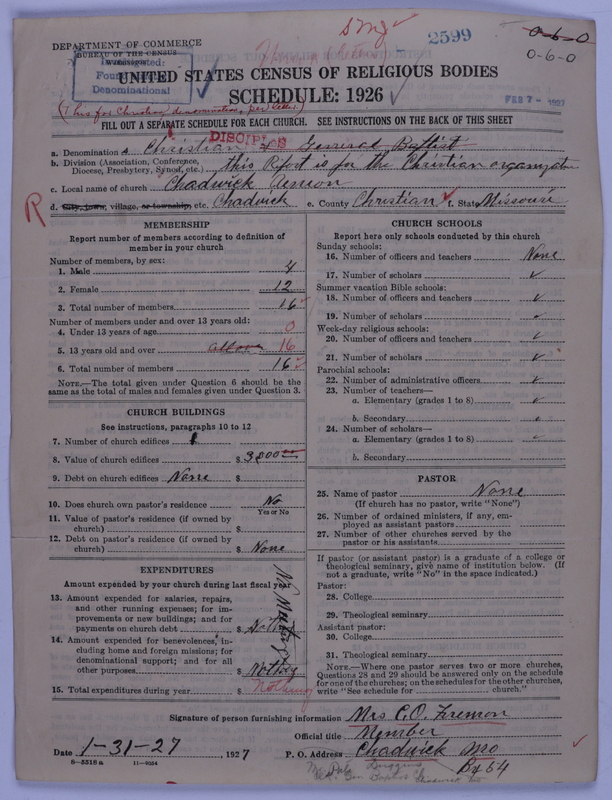 DEPARTMENT OF COMMERCE
BUREAU OF THE CENSUS
WASHINGTON
2599
0-6-0
0-6-0
UNITED STATES CENSUS OF RELIGIOUS BODIES
SCHEDULE: 1926
FEB 7 - 1927
(This for Christian denomination, per letter.)
FILL OUT A SEPARATE SCHEDULE FOR EACH CHURCH. SEE INSTRUCTIONS ON THE BACK OF THIS SHEET
DISCIPLES
a. Denomination Christian & General Baptist
b. Division (Association, Conference, Diocese, Presbytery, Synod, etc.) this Report is for the Christian
c. Local name of church Chadwick
d. City, town, village, or township, etc. Chadwick e. County Christian f. State Missouri
R
MEMBERSHIP
Report number of members according to definition of
member in your church
Number of members, by sex:
1. Male 4
2. Female 12
3. Total number of members 16
Number of members under and over 13 years old:
4. Under 13 years of age 0
5. 13 years old and over all over 16
6. Total number of members 16
NOTE.—The total given under Question 6 should be the
same as the total of males and females given under Question 3.
CHURCH BUILDINGS
See instructions, paragraphs 10 to 12
7. Number of church edifices 1
8. Value of church edifices $ 3,800.00
9. Debt on church edifices None $
10. Does church own pastor's residence No
Yes or No
11. Value of pastor's residence (if owned by
church) $
12. Debt on pastor's residence (if owned by
church) $ None
EXPENDITURES
Amount expended by your church during last fiscal year
13. Amount expended for salaries, repairs,
and other running expenses; for im-
provements or new buildings; and for
payments on church debt $ Nothing
14. Amount expended for benevolences, in-
cluding home and foreign missions; for
denominational support; and for all
other purposes $ Nothing
15. Total expenditures during year $ Nothing
CHURCH SCHOOLS
Report here only schools conducted by this church
Sunday schools:
16. Number of officers and teachers None
17. Number of scholars
Summer vacation Bible schools:
18. Number of officers and teachers
19. Number of scholars
Week-day religious schools:
20. Number of officers and teachers
21. Number of scholars
Parochial schools:
22. Number of administrative officers
23. Number of teachers—
a. Elementary (grades 1 to 8)
b. Secondary
24. Number of scholars—
a. Elementary (grades 1 to 8)
b. Secondary
PASTOR
25. Name of pastor None
(If church has no pastor, write "None")
26. Number of ordained ministers, if any, em-
ployed as assistant pastors
27. Number of other churches served by the
pastor or his assistants
If pastor (or assistant pastor) is a graduate of a college or
theological seminary, give name of institution below. (If
not a graduate, write "No" in the space indicated.)
Pastor:
28. College
29. Theological seminary
Assistant pastor:
30. College
31. Theological seminary
NOTE.—Where one pastor serves two or more churches,
Questions 28 and 29 should be answered only on the schedule
for one of the churches; on the schedules for the other churches,
write "See schedule for church."
Signature of person furnishing information Mrs C.O. Fremon
Official title Member
Date 1-31-27, 1927 P. O. Address Chadwick Mo
Bx 64
8-5518 a 11-9064